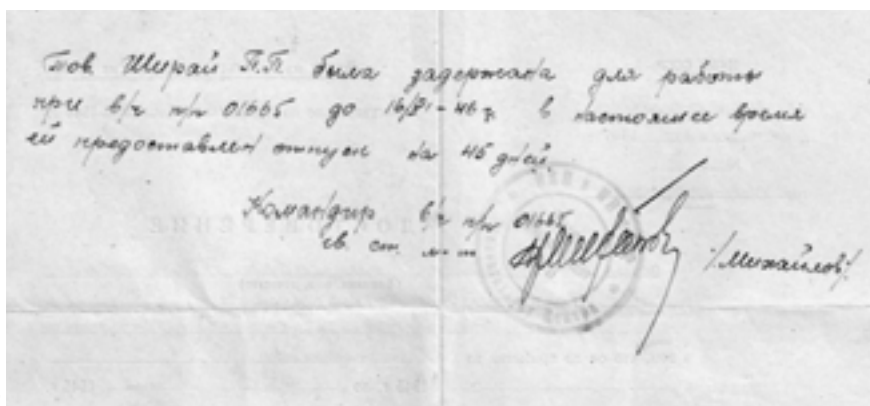 Тов. Ширай П.П была задержана для работы
при в/ч п/п 01665 до 16/VI-46 г. в настоящее время
ей предоставлен отпуск на 45 дней
Командир в/ч п/п 01665
гв. ст. л-т /Михайлов/